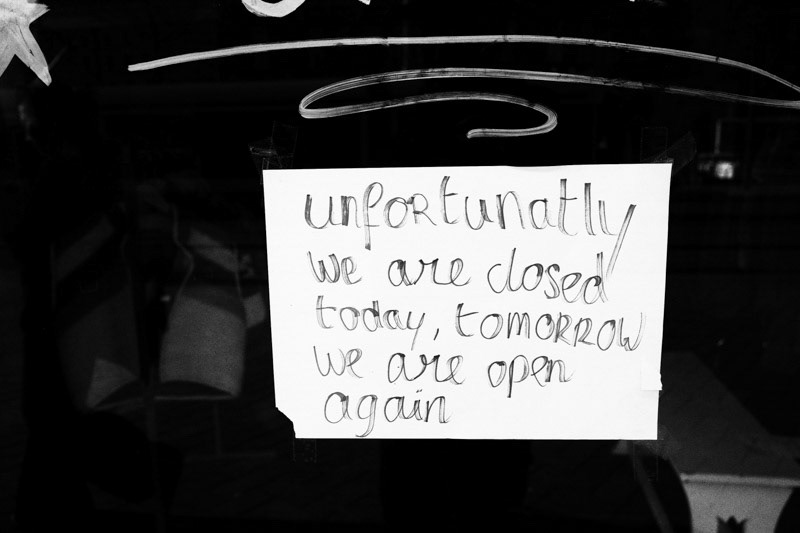 unfortunatly
we are closed
today, tomorrow
we are open
again